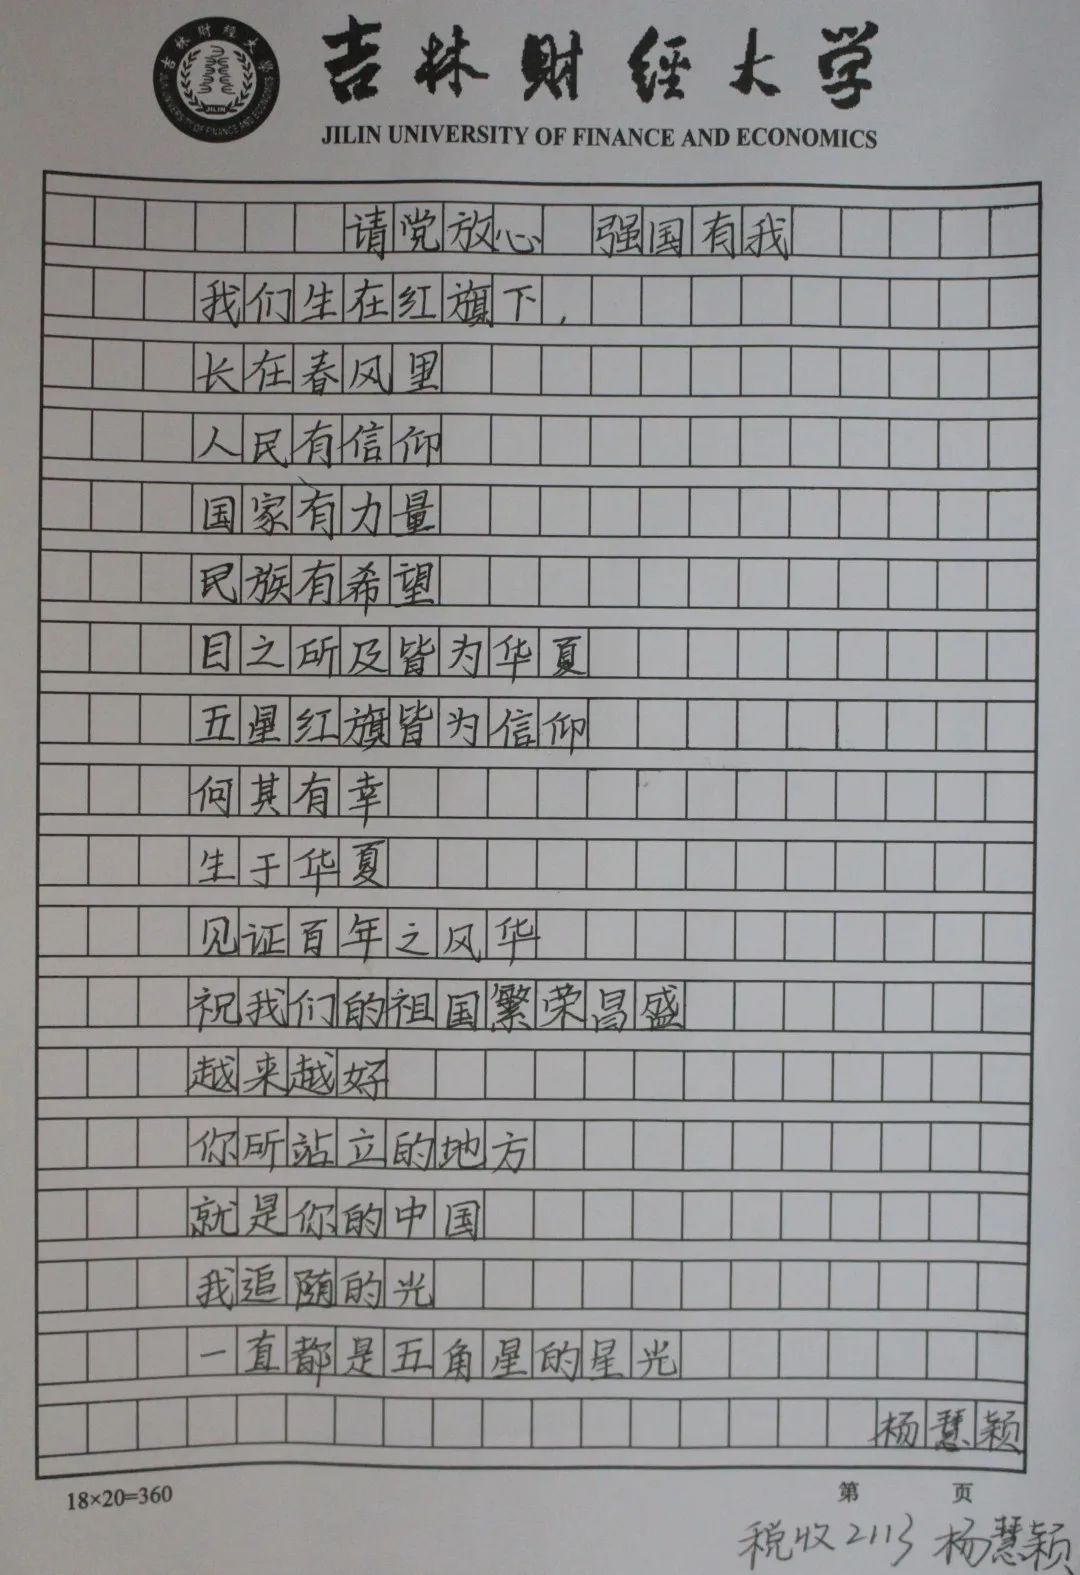 吉林财经大学
JILIN UNIVERSITY OF FINANCE AND ECONOMICS
请党放心 强国有我
我们生在红旗下,
长在春风里
人民有信仰
国家有力量
民族有希望
目之所及皆为华夏
五星红旗皆为信仰
何其有幸
生于华夏
见证百年之风华
祝我们的祖国繁荣昌盛
越来越好
你所站立的地方
就是你的中国
我追随的光
一直都是五角星的星光
杨慧颖
18×20=360 第 页
税收2113 杨慧颖